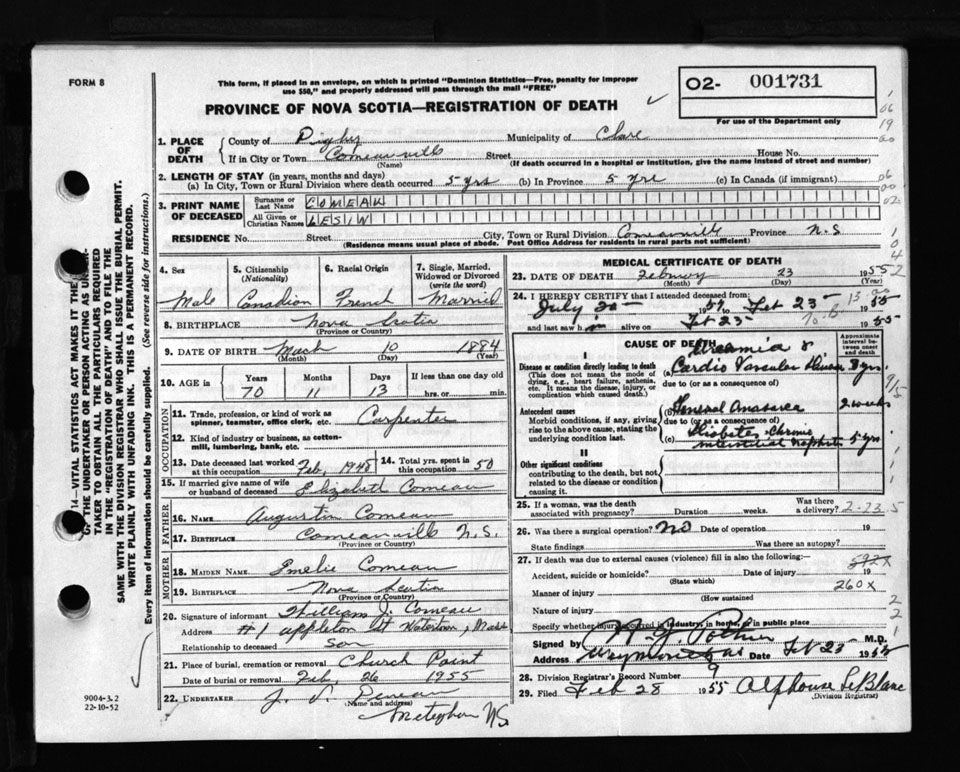 FORM 8
This form, if placed in an envelope, on which is printed "Dominion Statistics—Free, penalty for improper
use $50," and properly addressed will pass through the mail "FREE"
O2- 001731
For use of the Department only
PROVINCE OF NOVA SCOTIA—REGISTRATION OF DEATH
1. PLACE OF DEATH
County of Digby Municipality of Clare
If in City or Town Comeauville Street House No.
(Name) (If death occurred in a hospital or institution, give the name instead of street and number)
2. LENGTH OF STAY (in years, months and days)
(a) In City, Town or Rural Division where death occurred 5 yrs (b) In Province 5 yrs (c) In Canada (if immigrant)
3. PRINT NAME OF DECEASED
Surname or Last Name COMEAU
All Given or Christian Names LESIN
RESIDENCE No. Street City, Town or Rural Division Comeauville Province N.S
(Residence means usual place of abode. Post Office Address for residents in rural parts not sufficient)
4. Sex Male
5. Citizenship (Nationality) Canadian
6. Racial Origin French
7. Single, Married, Widowed or Divorced (write the word) Married
8. BIRTHPLACE Nova Scotia
(Province or Country)
9. DATE OF BIRTH Mach 10 1884
(Month) (Day) (Year)
10. AGE in Years Months Days If less than one day old
70 11 13 hrs. or min.
OCCUPATION
11. Trade, profession, or kind of work as spinner, teamster, office clerk, etc. Carpenter
12. Kind of industry or business, as cotton-mill, lumbering, bank, etc.
13. Date deceased last worked at this occupation Feb, 1948
14. Total yrs. spent in this occupation 50
15. If married give name of wife or husband of deceased Elizabeth Comeau
FATHER
16. NAME Augustin Comeau
17. BIRTHPLACE Comeauville N.S.
(Province or Country)
MOTHER
18. MAIDEN NAME Emelie Comeau
19. BIRTHPLACE Nova Scotia
(Province or Country)
20. Signature of informant William J. Comeau
Address #1 Appleton St Watertown, Mass
Relationship to deceased Son
21. Place of burial, cremation or removal Church Point
Date of burial or removal Feb, 26 1955
22. UNDERTAKER J. V.
(Name and address)
Meteghan NS
9004-3.2
22-10-52
MEDICAL CERTIFICATE OF DEATH
23. DATE OF DEATH 23 1955
(Month) (Day) (Year)
24. I HEREBY CERTIFY that I attended deceased from:
July 20 Feb 23 1955
and last saw him alive on Feb 23 1955
CAUSE OF DEATH
Approximate interval between onset and death
I
Disease or condition directly leading to death
(This does not mean the mode of dying, e.g., heart failure, asthenia, etc. It means the disease, injury, or complication which caused death.)
(a) Uraemia &
Cardio Vascular Disease 8 yrs.
due to (or as a consequence of)
Antecedent causes
Morbid conditions, if any, giving rise to the above cause, stating the underlying condition last.
(b) General Anasarca 2 weeks
due to (or as a consequence of)
(c) Diabetes Chronic
interstitial nephritis 5 yrs
II
Other significant conditions
contributing to the death, but not related to the disease or condition causing it.
25. If a woman, was the death associated with pregnancy? Duration weeks. Was there a delivery? 2-23-5
26. Was there a surgical operation? No Date of operation 19
State findings Was there an autopsy?
27. If death was due to external causes (violence) fill in also the following:—
Accident, suicide or homicide? Date of injury 19
(State which)
Manner of injury 260X
(How sustained
Nature of injury
Specify whether injury occurred in industry, in home, or in public place
Signed by M.D.
Address Weymouth Date Feb 23
28. Division Registrar's Record Number 9
29. Filed Feb 28 1955 Alphonse LeBlanc
(Division Registrar)
14—VITAL STATISTICS ACT MAKES IT THE
OF THE UNDERTAKER OR PERSON ACTING AS
TAKER TO OBTAIN ALL THE PARTICULARS REQUIRED
IN THE "REGISTRATION OF DEATH" AND TO FILE THE
SAME WITH THE DIVISION REGISTRAR WHO SHALL ISSUE THE BURIAL PERMIT.
WRITE PLAINLY WITH UNFADING INK. THIS IS A PERMANENT RECORD.
Every item of information should be carefully supplied. (See reverse side for instructions.)